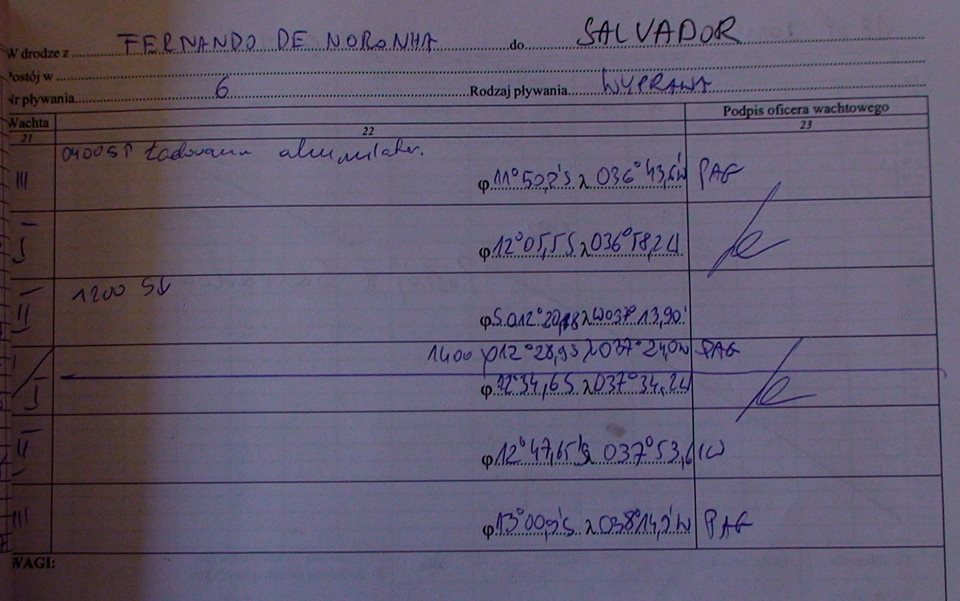 W drodze z FERNANDO DE NORONHA do SALVADOR
Postój w
Nr pływania 6 Rodzaj pływania WYPRAWA
Wachta Podpis oficera wachtowego
21 22 23
0400 ST Ładowanie akumulator.
III φ 11°50,2'S λ 036°43,6'W PAG
I φ 12°05,5S λ 036°58,2W
1200 SV
II φ S 012°20,18 λ W 037°13,90'
1400 φ 12°28,9S λ 037°24,0W PAG
I φ 12°34,6S λ 037°34,2W
II φ 12°47,65'S λ 037°53,61W
III φ 13°00,9'S λ 038°14,9'W PAG
WAGI: